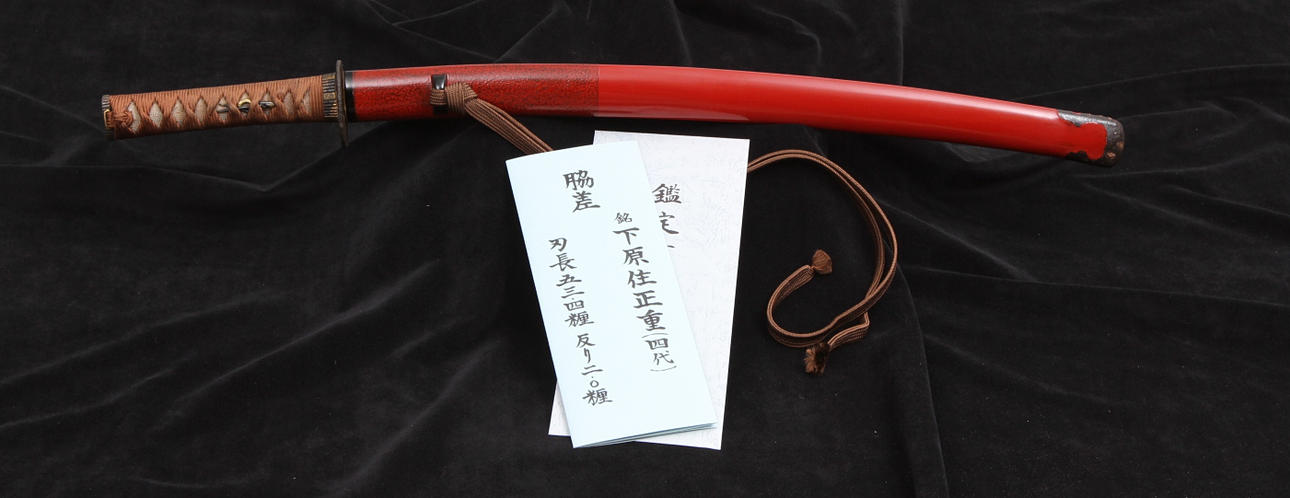 脇差
銘 下原住正重(四代)
刃長五三・四糎 反り二・〇糎
鑑定